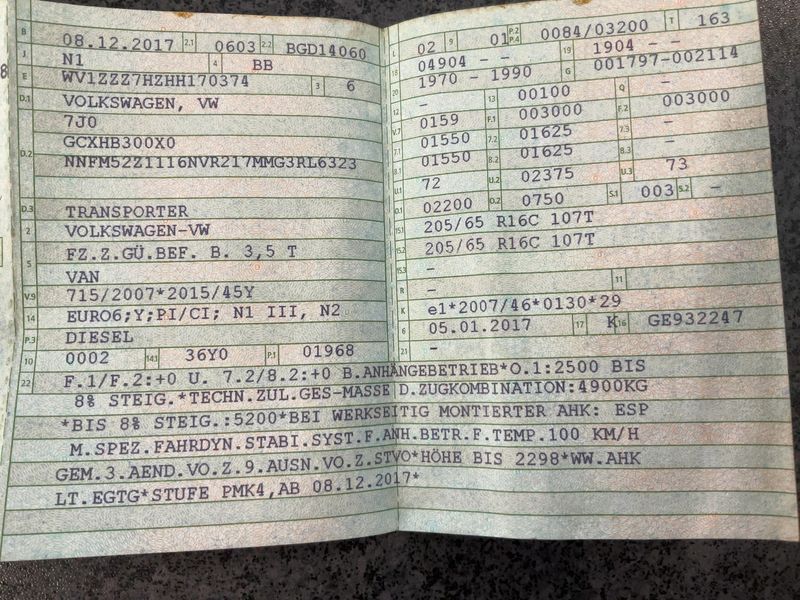 B 08.12.2017 2.1 0603 2.2 BGD14060
J N1 4 BB
E WV1ZZZ7HZHH170374 3 6
D.1 VOLKSWAGEN, VW
7J0
D.2 GCXHB300X0
NNFM52Z1116NVR217MMG3RL6323
D.3 TRANSPORTER
2 VOLKSWAGEN-VW
5 FZ.Z.GÜ.BEF. B. 3,5 T
VAN
V.9 715/2007*2015/45Y
14 EURO6;Y;PI/CI; N1 III, N2
P.3 DIESEL
10 0002 14.1 36Y0 P.1 01968
L 02 9 01 P.2 P.4 0084/03200 T 163
18 04904 - - 19 1904 - -
20 1970 - 1990 G 001797-002114
12 - 13 00100 Q -
V.7 0159 F.1 003000 F.2 003000
7.1 01550 7.2 01625 7.3 -
8.1 01550 8.2 01625 8.3 -
U.1 72 U.2 02375 U.3 73
O.1 02200 O.2 0750 S.1 003 S.2 -
15.1 205/65 R16C 107T
15.2 205/65 R16C 107T
15.3 -
R - 11
K e1*2007/46*0130*29
6 05.01.2017 17 K 16 GE932247
21 -
22 F.1/F.2:+0 U. 7.2/8.2:+0 B.ANHÄNGEBETRIEB*O.1:2500 BIS
8% STEIG.*TECHN.ZUL.GES-MASSE D.ZUGKOMBINATION:4900KG
*BIS 8% STEIG.:5200*BEI WERKSEITIG MONTIERTER AHK: ESP
M.SPEZ.FAHRDYN.STABI.SYST.F.ANH.BETR.F.TEMP.100 KM/H
GEM.3.AEND.VO.Z.9.AUSN.VO.Z.STVO*HÖHE BIS 2298*WW.AHK
LT.EGTG*STUFE PMK4,AB 08.12.2017*